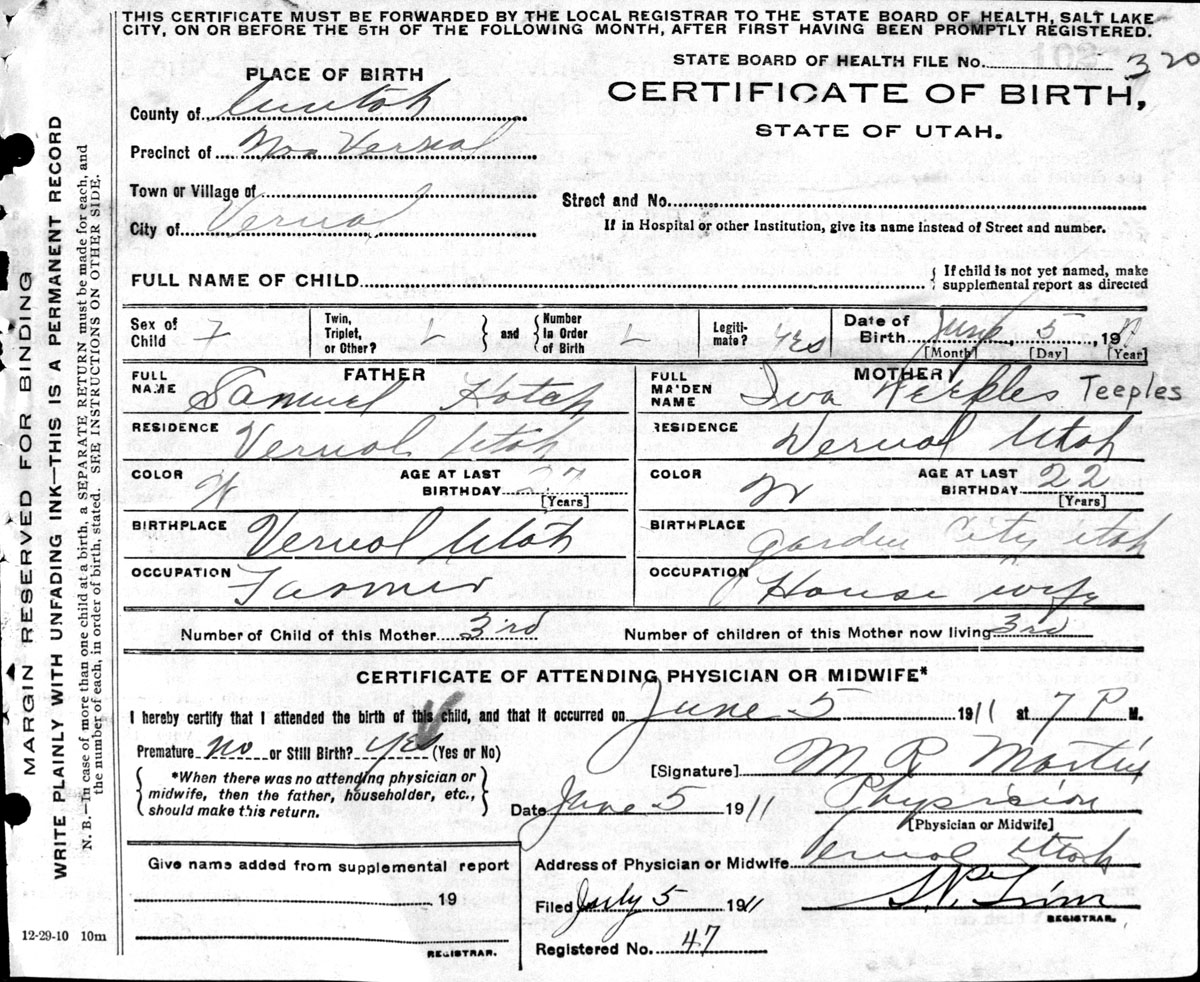 THIS CERTIFICATE MUST BE FORWARDED BY THE LOCAL REGISTRAR TO THE STATE BOARD OF HEALTH, SALT LAKE
CITY, ON OR BEFORE THE 5TH OF THE FOLLOWING MONTH, AFTER FIRST HAVING BEEN PROMPTLY REGISTERED.
STATE BOARD OF HEALTH FILE No. 320
PLACE OF BIRTH
CERTIFICATE OF BIRTH,
STATE OF UTAH.
County of Uintah
Precinct of Vernal
Town or Village of
City of Vernal
Street and No.
If in Hospital or other Institution, give its name instead of Street and number.
FULL NAME OF CHILD
{ If child is not yet named, make
supplemental report as directed
Sex of Child F
Twin, Triplet, or Other? } and { Number in Order of Birth
Legitimate? Yes
Date of Birth June 5 191
[Month] [Day] [Year]
FATHER
FULL NAME Samuel Hatch
RESIDENCE Vernal Utah
COLOR W
AGE AT LAST BIRTHDAY 27
[Years]
BIRTHPLACE Vernal Utah
OCCUPATION Farmer
MOTHER
FULL MAIDEN NAME Iva Teeples
RESIDENCE Vernal Utah
COLOR W
AGE AT LAST BIRTHDAY 22
[Years]
BIRTHPLACE Garden City Utah
OCCUPATION House wife
Number of Child of this Mother 3rd
Number of children of this Mother now living 3rd
CERTIFICATE OF ATTENDING PHYSICIAN OR MIDWIFE*
I hereby certify that I attended the birth of this child, and that it occurred on June 5 1911 at 7 P M.
Premature no or Still Birth? yes (Yes or No)
{ *When there was no attending physician or
midwife, then the father, householder, etc.,
should make this return. }
[Signature] M R Martin
Date June 5 1911
Physician
[Physician or Midwife]
Give name added from supplemental report
19
REGISTRAR.
Address of Physician or Midwife Vernal Utah
Filed July 5 1911
REGISTRAR.
Registered No. 47
12-29-10 10m
MARGIN RESERVED FOR BINDING
WRITE PLAINLY WITH UNFADING INK—THIS IS A PERMANENT RECORD
N. B.—In case of more than one child at a birth, a SEPARATE RETURN must be made for each, and
the number of each, in order of birth, stated. SEE INSTRUCTIONS ON OTHER SIDE.